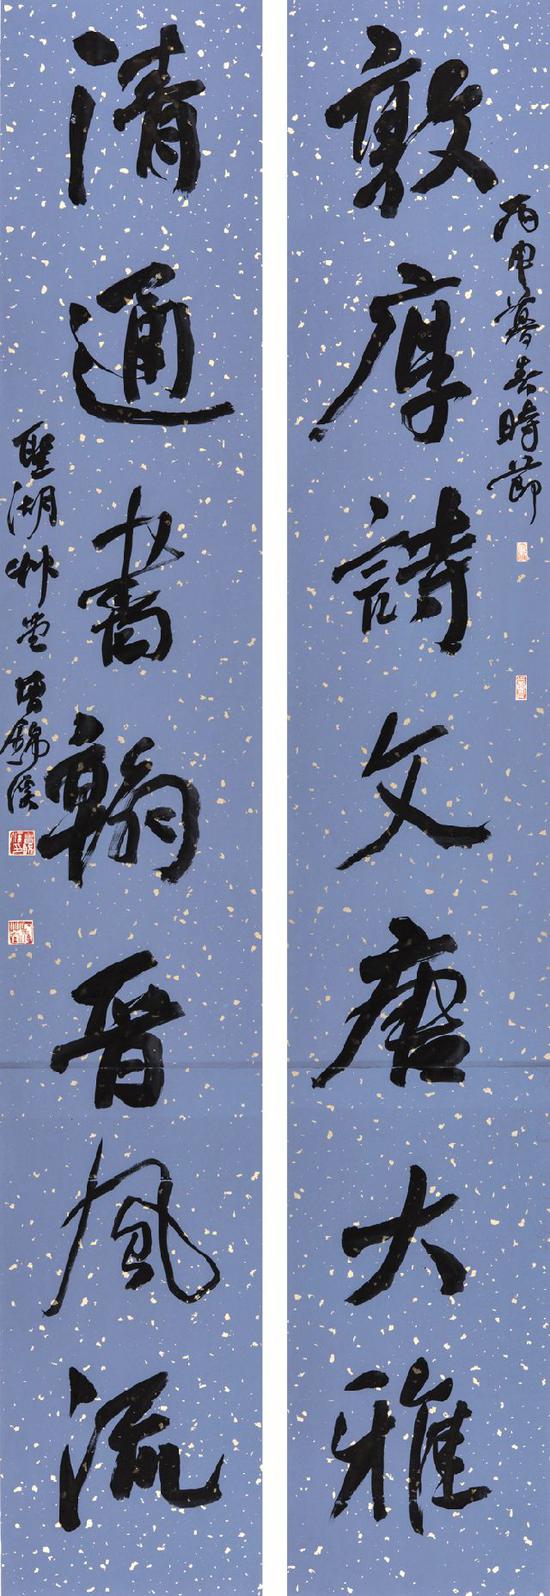 敦厚詩文唐大雅
丙申暮春時節
清通書翰晉風流
聖湖艸堂曾錦溪